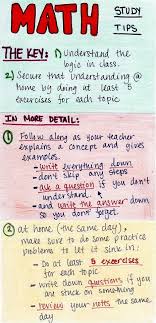 MATH
STUDY
TIPS
THE KEY: 1) Understand the
logic in class.
2) Secure that understanding @
home by doing at least 5
exercises for each topic
IN MORE DETAIL:
1 Follow along as your teacher
explains a concept and gives
examples.
- write everything down
- dont skip any steps
- ask a question if you don't
understand
- and write the answer down
so you don't forget.
2 at home (the same day),
make sure to do some practice
problems to let it sink in:
- Do at least 5 exercises
for each topic
- write down questions if you
are stuck on something
- review your notes the same
day